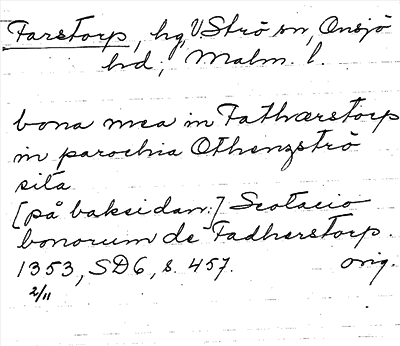 Farstorp, hg, V Strö sn, Onsjö
hd, Malm. l.
bona mea in Fathærstorp
in parochia Othenzströ
sita
[på baksidan:] Scotacio
bonorum de Fadherstorp.
1353, SD6, s. 457. orig.
2/11